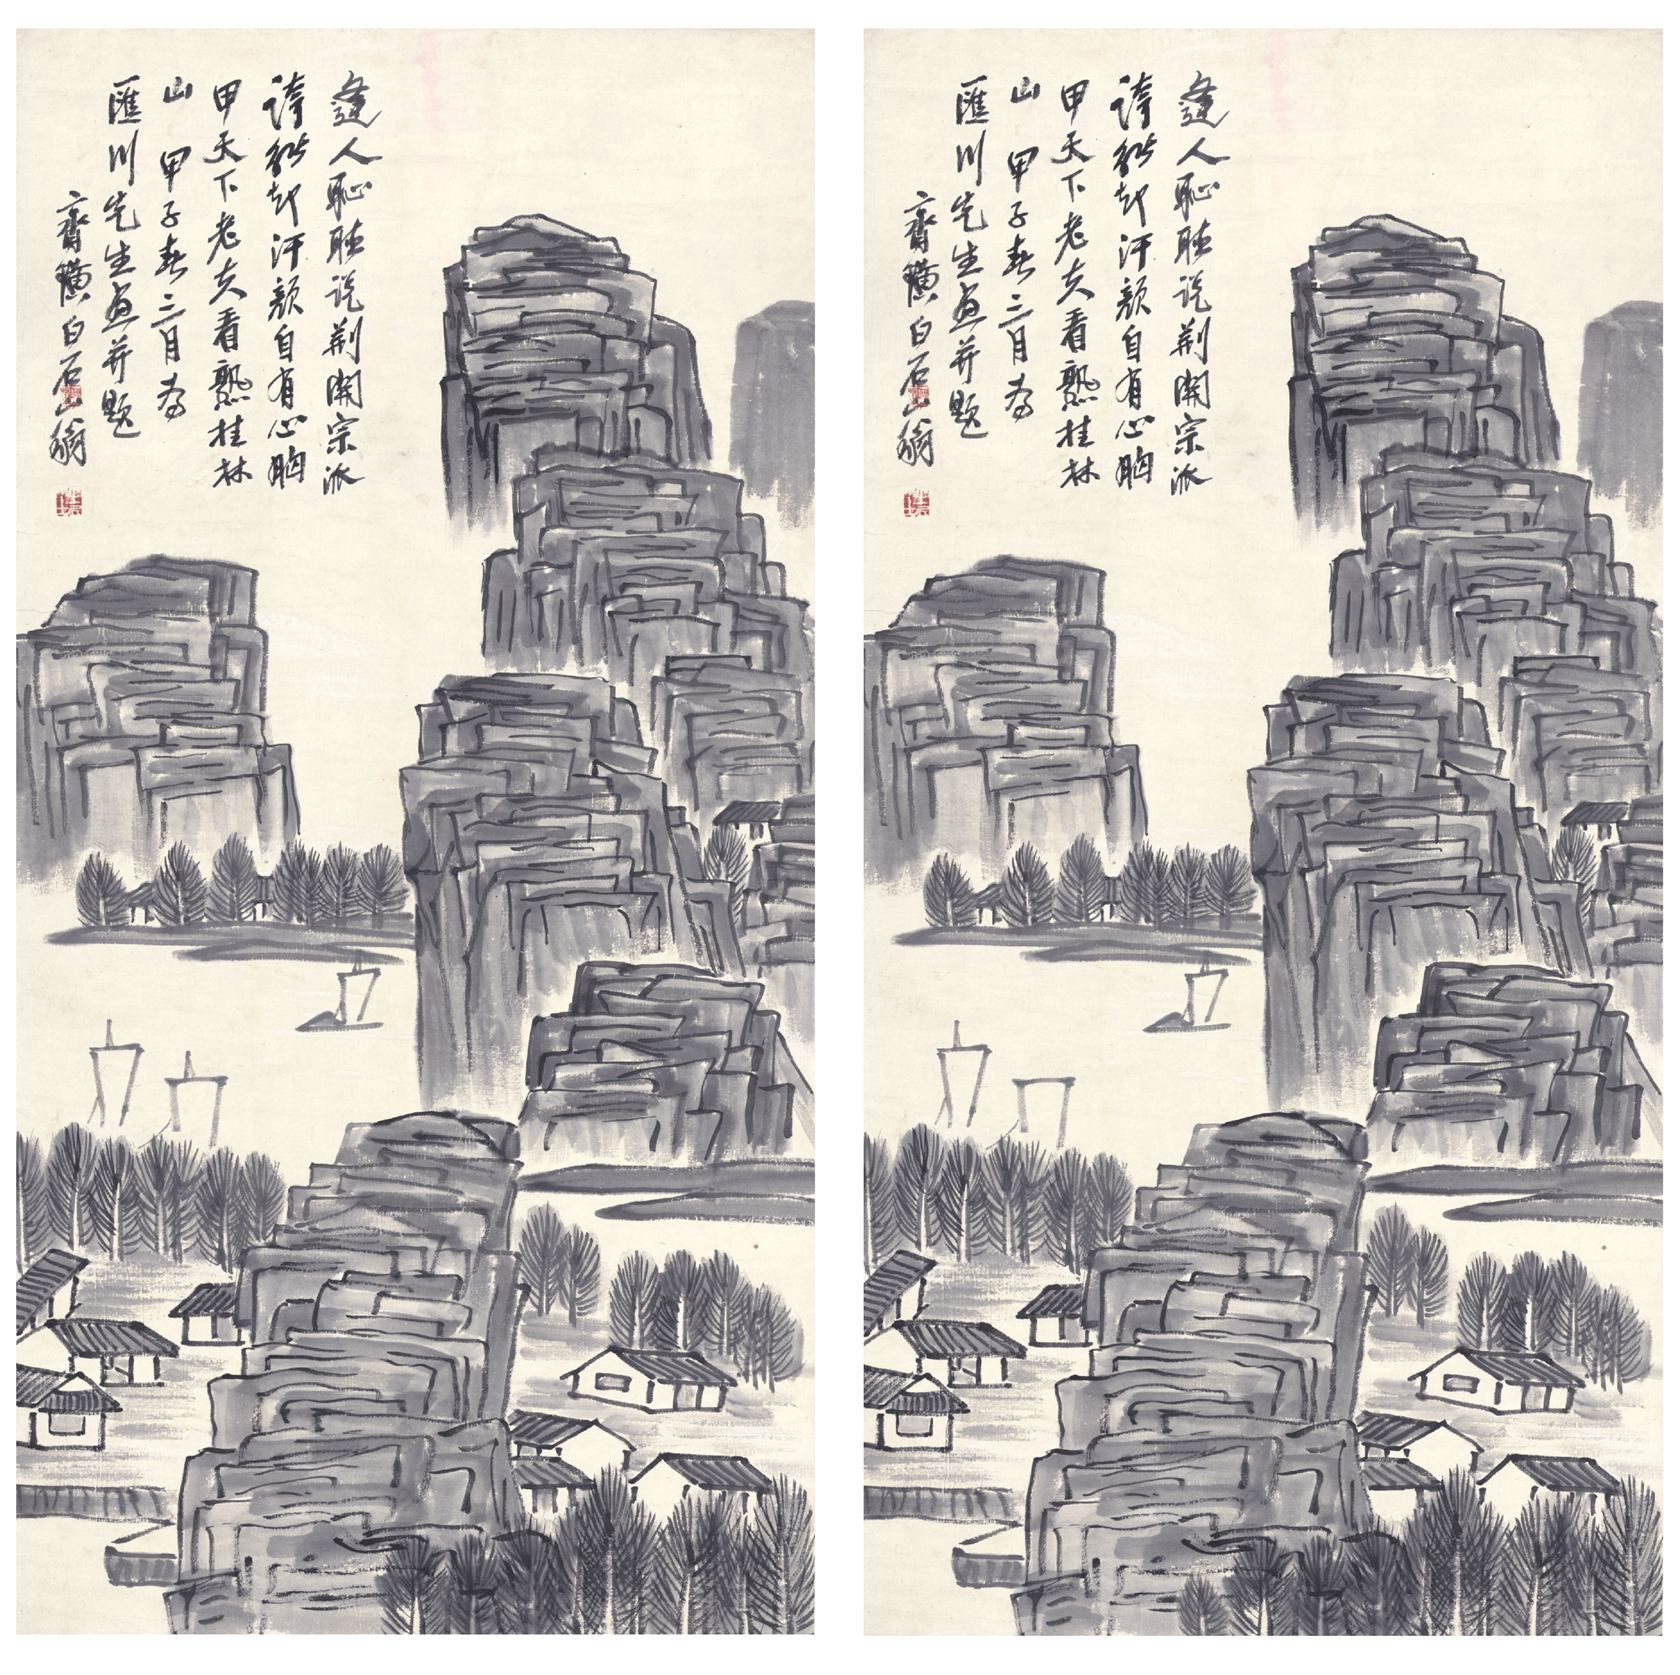 逢人恥聽說荊關宗派
誇能却汗顏自有心胸
甲天下老夫看熟桂林
山 甲子春二月為
匯川先生画并題
齊璜白石山翁
逢人恥聽說荊關宗派
誇能却汗顏自有心胸
甲天下老夫看熟桂林
山 甲子春二月為
匯川先生画并題
齊璜白石山翁